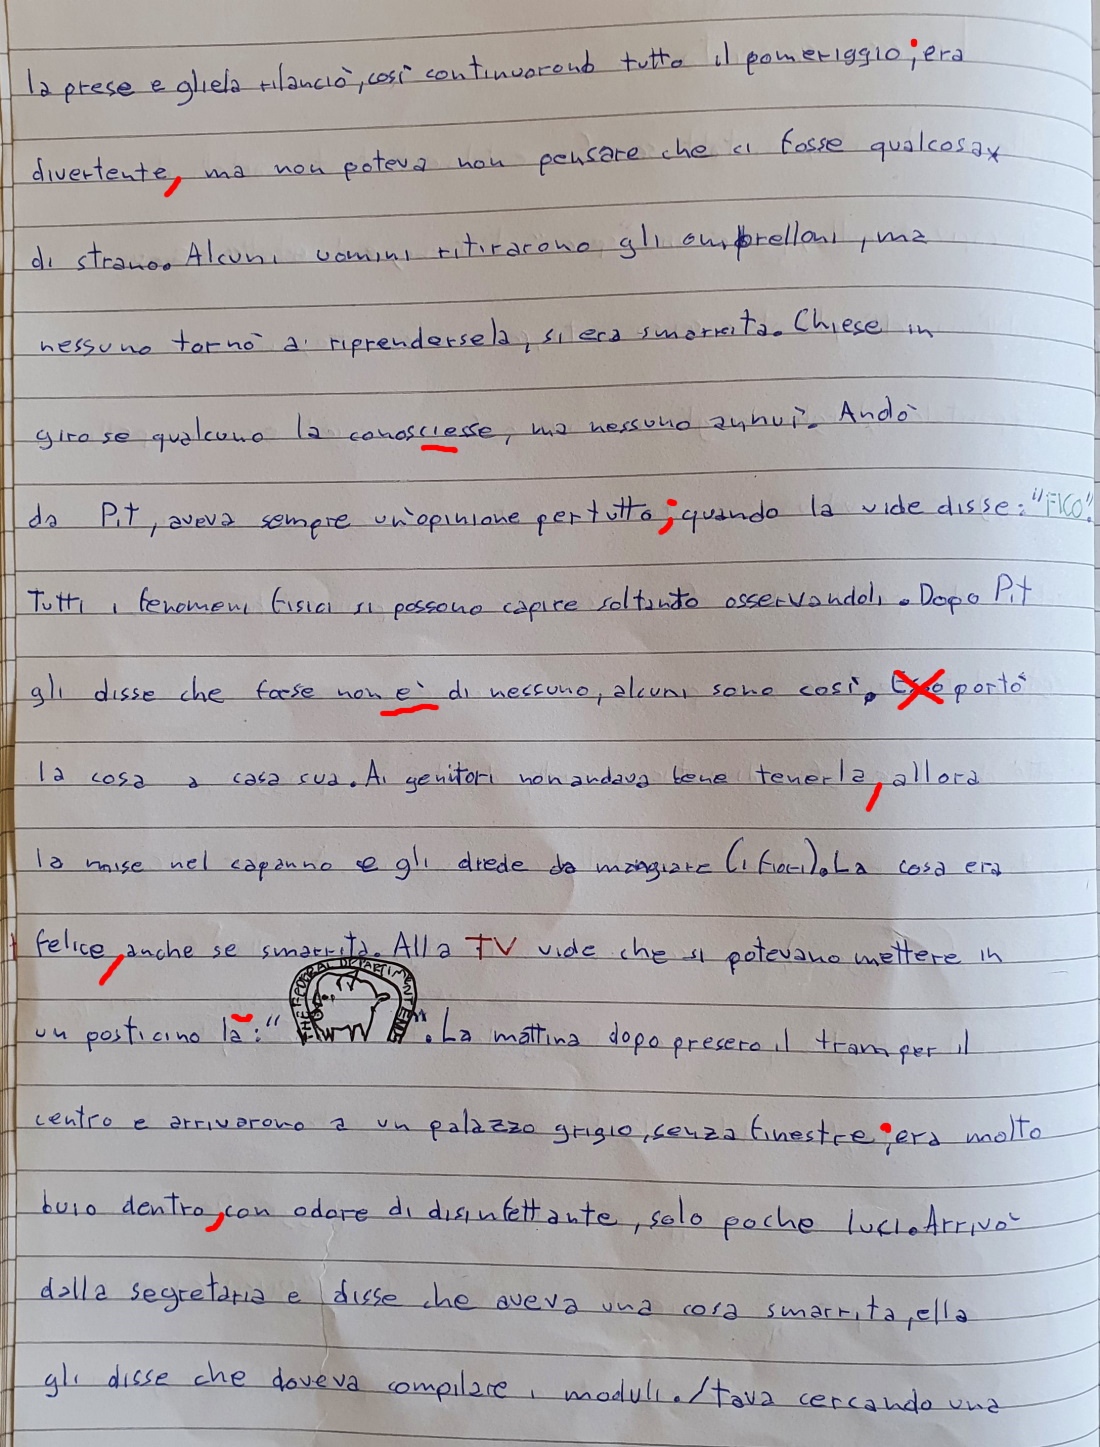 la prese e gliela rilanciò, così continuarono tutto il pomeriggio; era
divertente, ma non poteva non pensare che ci fosse qualcosa
di strano. Alcuni uomini ritirarono gli ombrelloni, ma
nessuno tornò a riprendersela, si era smarrita. Chiese in
giro se qualcuno la conosciesse, ma nessuno annuì. Andò
da Pit, aveva sempre un'opinione per tutto; quando la vide disse: "FICO".
Tutti i fenomeni fisici si possono capire soltanto osservandoli. Dopo Pit
gli disse che forse non è di nessuno, alcuni sono così. Esso portò
la cosa a casa sua. Ai genitori non andava bene tenerla, allora
la mise nel capanno e gli diede da mangiare (i fiori). La cosa era
felice, anche se smarrita. Alla TV vide che si potevano mettere in
un posticino là: " ". La mattina dopo presero il tram per il
centro e arrivarono a un palazzo grigio, senza finestre; era molto
buio dentro, con odore di disinfettante, solo poche luci. Arrivò
dalla segretaria e disse che aveva una cosa smarrita, ella
gli disse che doveva compilare i moduli. Stava cercando una